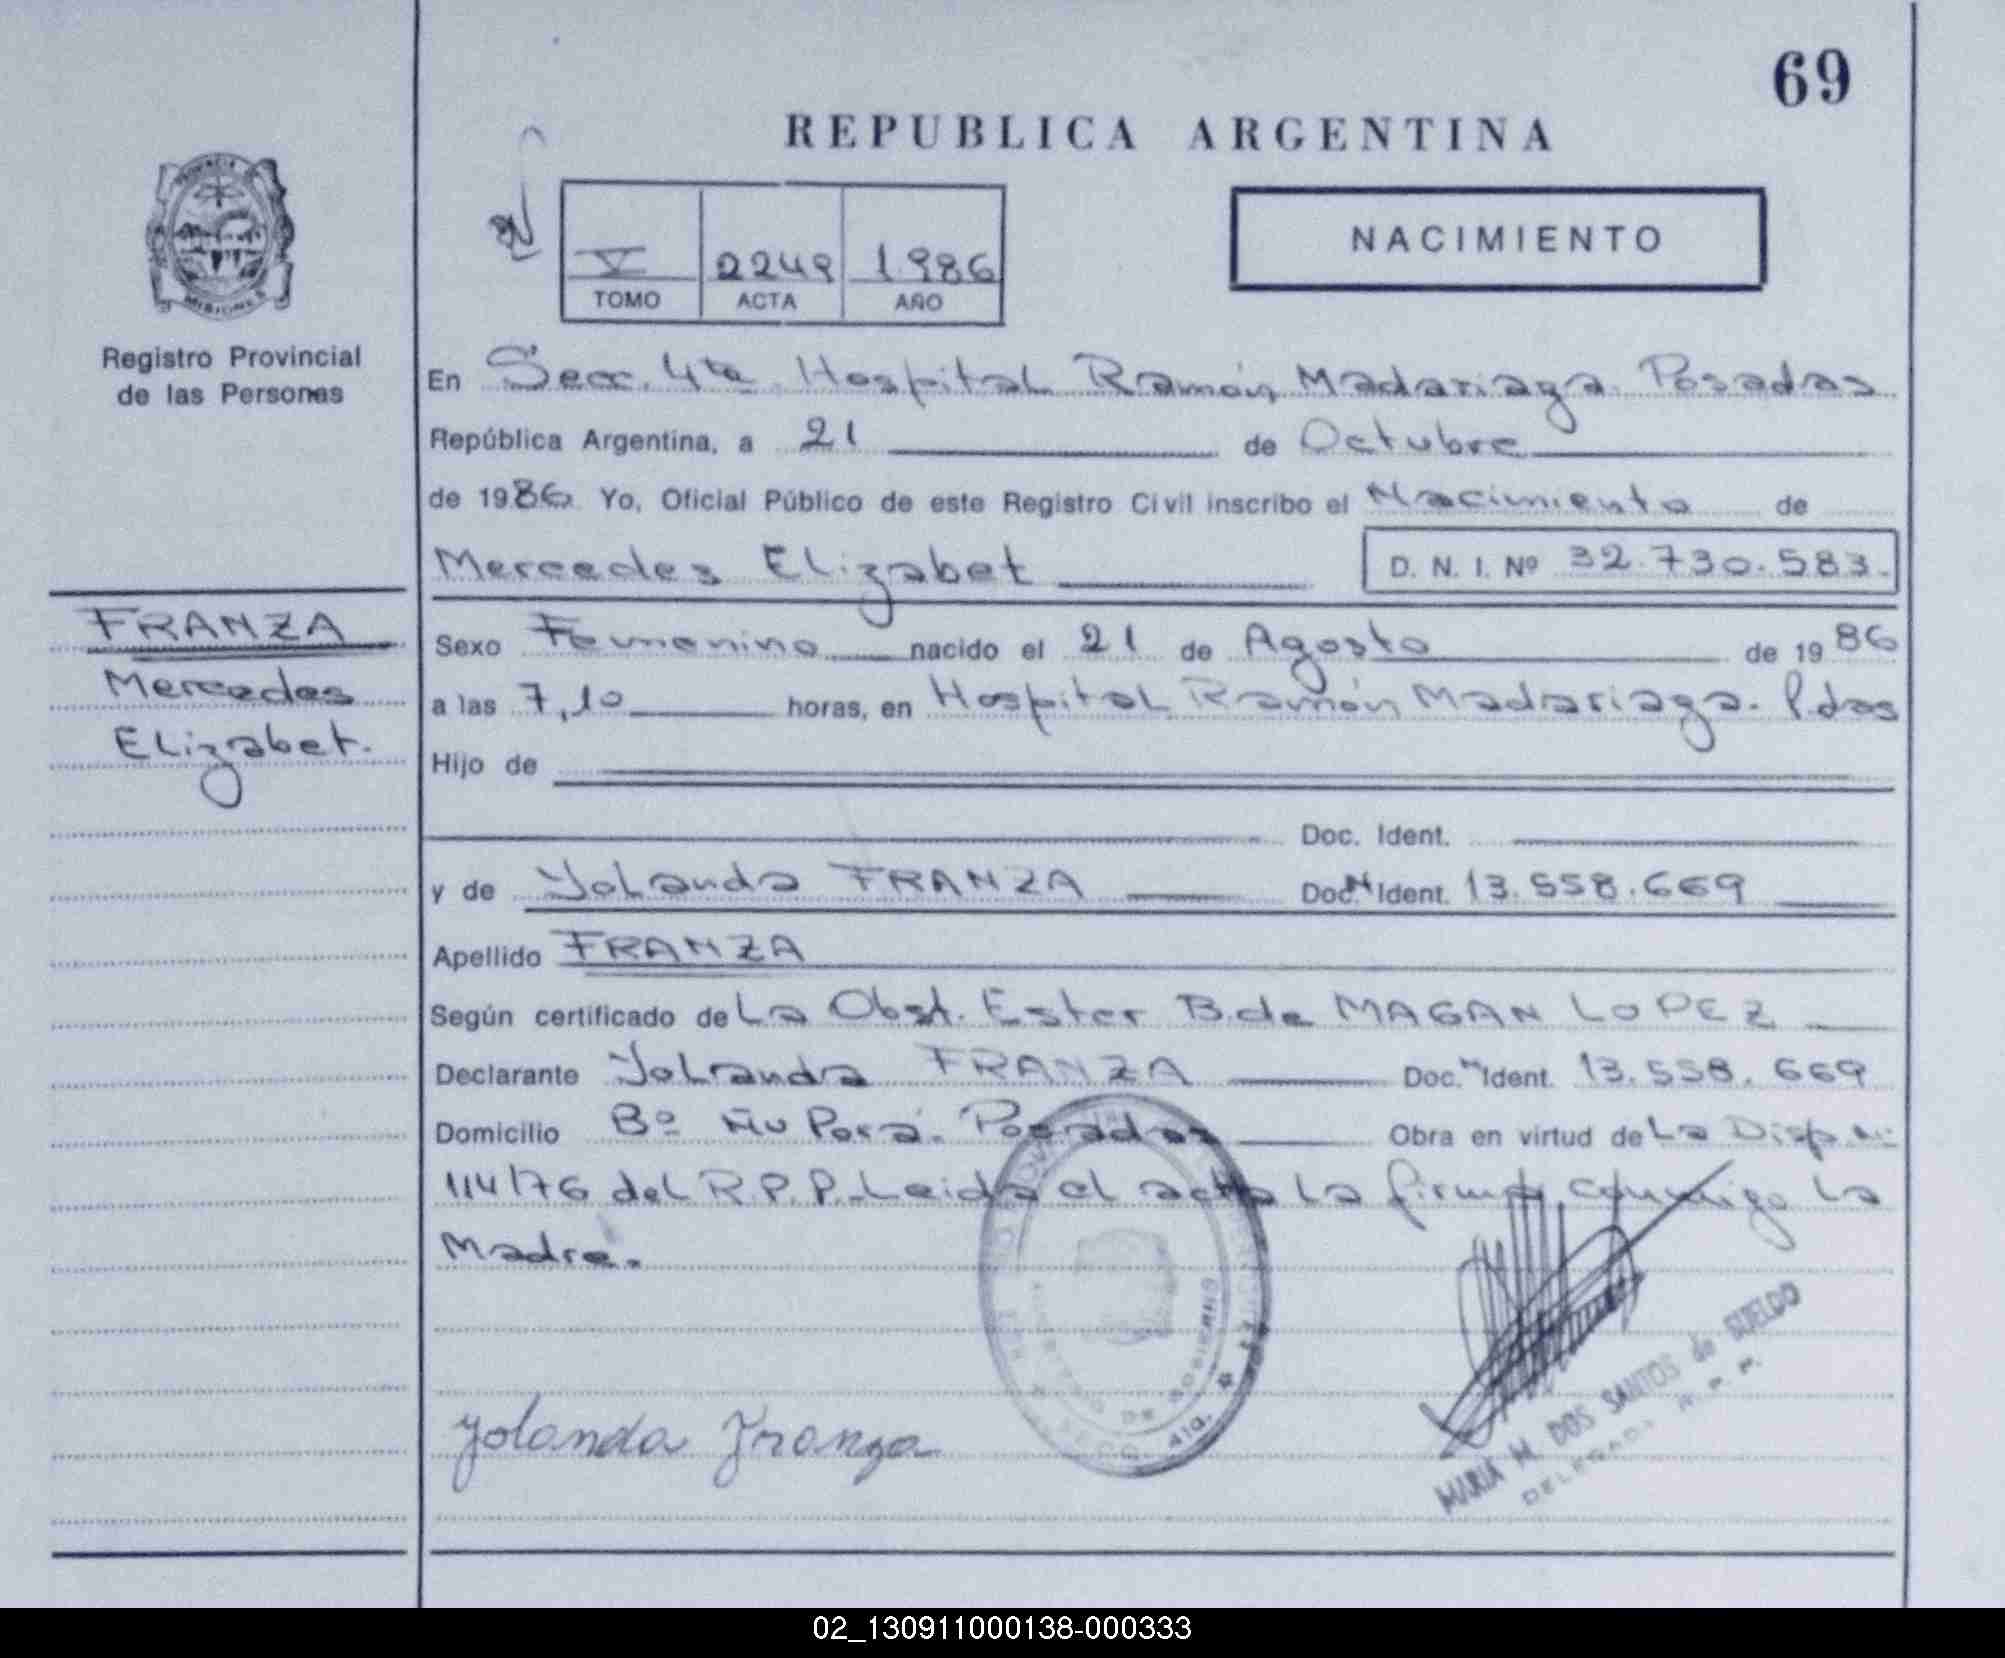 69
REPUBLICA ARGENTINA
NACIMIENTO
V 2249 1986
TOMO ACTA AÑO
PROVINCIA DE MISIONES
Registro Provincial
de las Personas
FRANZA
Mercedes
Elizabet.
En Secc. 4ta. Hospital Ramón Madariaga. Posadas
República Argentina, a 21 de Octubre
de 1986. Yo, Oficial Público de este Registro Civil inscribo el Nacimiento de
Mercedes Elizabet D. N. I. Nº 32.730.583.
Sexo Femenino nacido el 21 de Agosto de 1986
a las 7,10 horas, en Hospital Ramón Madariaga. Pdas
Hijo de
Doc. Ident.
y de Yolanda FRANZA Doc. N Ident. 13.558.669
Apellido FRANZA
Según certificado de La Obst. Ester B. de MAGAN LOPEZ
Declarante Yolanda FRANZA Doc. N Ident. 13.558.669
Domicilio Bº Ñu Porá. Posadas Obra en virtud de La Disp.
114/76 del R.P.P.-Leida el acta La firma conmigo La
Madre.
Yolanda Franza
4ta.
MARIA M. DOS SANTOS de SUELDO
DELEGADA R. P. P.
02_130911000138-000333